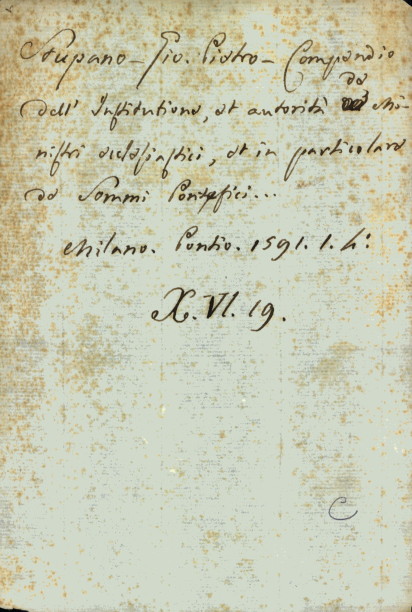 Stupano - Gio. Pietro - Compendio
dell' Institutione, et autorità de Mi-
nistri ecclesiastici, et in particolare
de Sommi Pontefici...
Milano. Pontio. 1591. 1. 4:
X. VI. 19.
C